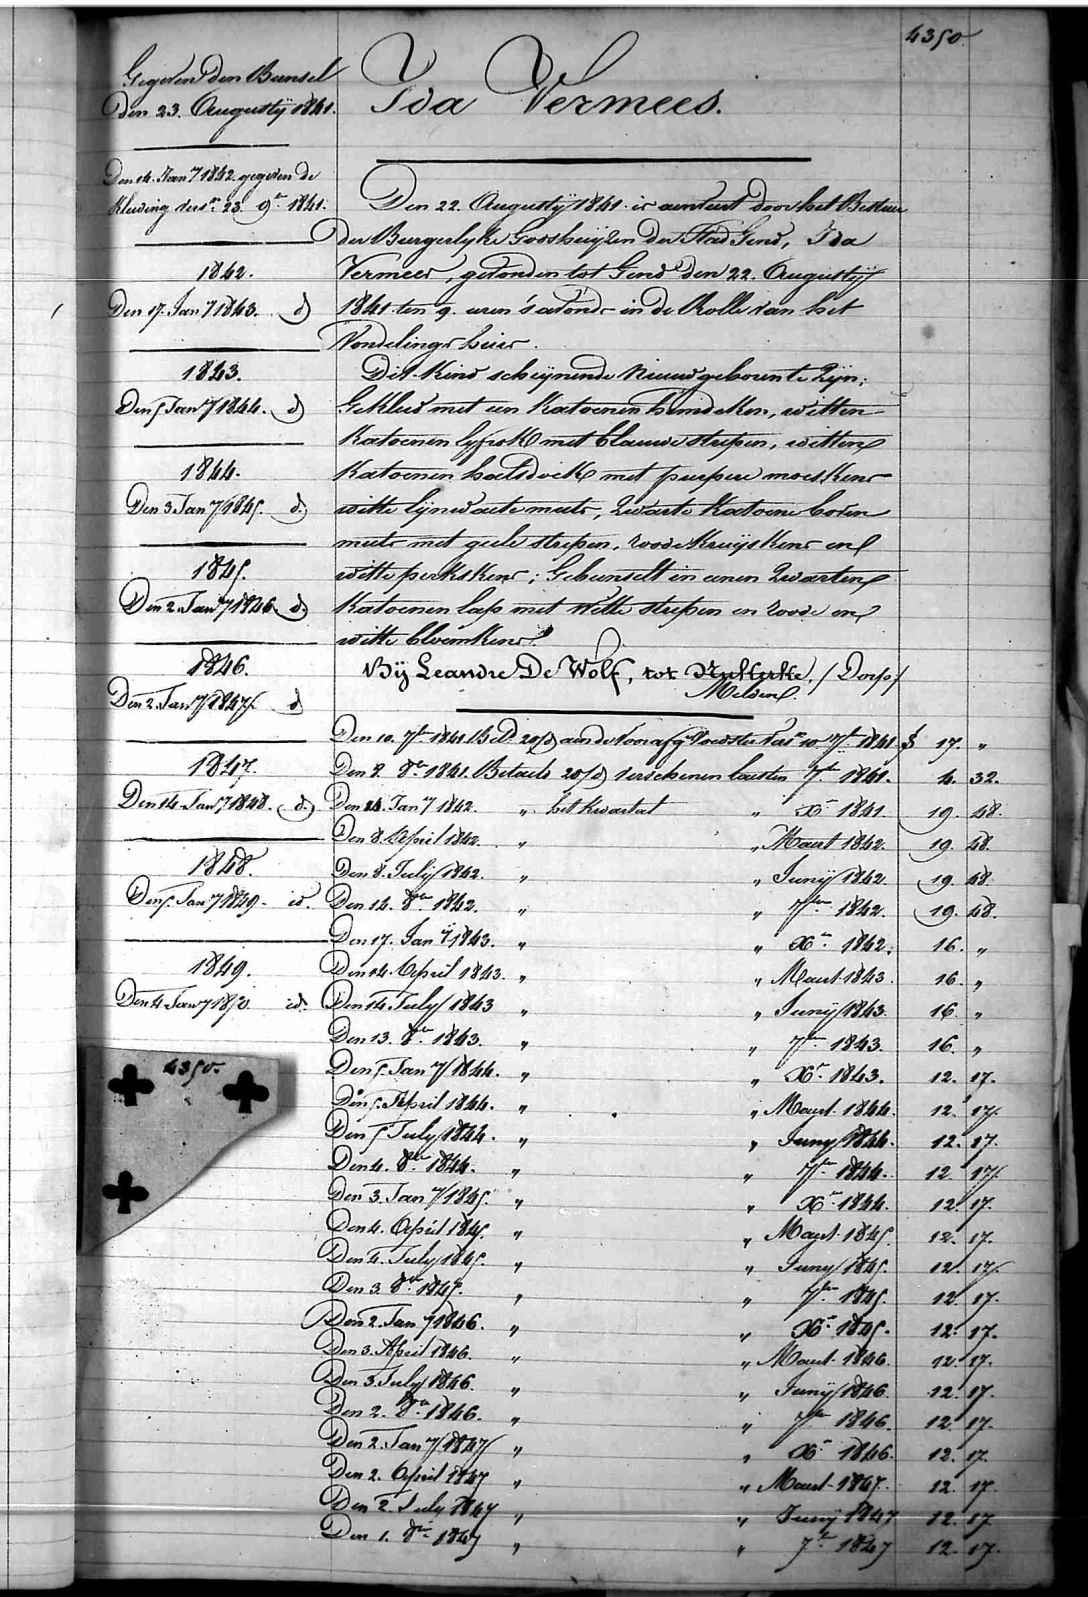 4350
Gegeven den Bunsel
den 23. Augustÿ 1841.
Den 14. Jan.y 1842. gegeven de
Kleeding ders.n 23. 9.r 1841.
1842.
Den 17. Jan.y 1843. d
1843.
Den 5 Jan.y 1844. d
1844.
Den 3 Jan.y 1845. d.
1845.
Den 2. Jan.y 1846. d.
1846.
Den 2. Jan.y 1847. d
1847.
Den 14. Jan.y 1848. d.
1848.
Den 5. Jan.y 1849. id.
1849.
Den 4. Jan.y 1850. id.
4350.
Ida Vermees.
Den 22. Augustÿ 1841. is aenveert door het Bestuer
der Burgerlyke Godshuizen der Stad Gend, Ida
Vermees, gevonden tot Gend den 22. Augustÿ
1841. ten 9. uren 's avonds in de Rolle van het
Vondelings huis.
Dit Kind schynende nieuw geboren te zyn;
Gekleed met een Katoenen hemdeken, witten
Katoenen lyfrok met blauwe strepen, witten
Katoenen halsdoek met purpere moeskens
witte lynwaete muts, zwarte Katoene boven
muts met geele strepen, roode Kruyskens en
witte perkskens; Gebunselt in eenen zwarten
Katoenen lap met witte strepen en roode en
witte bloemkens.
Bÿ Leandre De Wolf, tot Nukerke, / Dorp /
Melden.
Den 10. 7.r 1841. Bet.d 20/d aen de Voorafg. Voedster Vers.n 10 7.r 1841. $ 17. "
Den 8. 8.r 1841. Betaeld 20/d verschenen lausten 7.r 1841. 4. 32.
Den 14. Jan.y 1842. " het kwartael " X.r 1841. 19. 48.
Den 8. April 1842. " " Maert 1842. 19. 48.
Den 8. July 1842. " " Junÿ 1842. 19 48
Den 14. 8.er 1842. " " 7.er 1842. 19. 48.
Den 17. Jan.y 1843. " " X.r 1842. 16. "
Den 14. April 1843. " " Maert 1843. 16. "
Den 14 July 1843 " " Junÿ 1843. 16 "
Den 13. 8.er 1843. " " 7.er 1843. 16. "
Den 5. Jan.y 1844. " " X.r 1843. 12. 17.
Den 5. April 1844. " " Maert 1844. 12. 17.
Den 5 July 1844. " " Juny 1844. 12. 17.
Den 4. 8.er 1844. " " 7.er 1844. 12 17.
Den 3. Jan.y 1845. " " X.r 1844. 12. 17.
Den 4. April 1845. " " Maert 1845. 12. 17.
Den 4. July 1845. " " Juny 1845. 12. 17.
Den 3. 8.er 1845. " " 7.er 1845. 12. 17.
Den 2. Jan.y 1846. " " X.r 1845. 12. 17.
Den 3. April 1846. " " Maert 1846. 12. 17.
Den 3. July 1846. " " Junÿ 1846. 12. 17.
Den 2. 8.er 1846. " " 7.er 1846. 12. 17.
Den 2. Jan.y 1847 " " X.r 1846. 12. 17.
Den 2. April 1847 " " Maert 1847. 12. 17.
Den 2. July 1847 " " Junÿ 1847 12. 17
Den 1. 8.er 1847 " " 7.r 1847 12. 17.